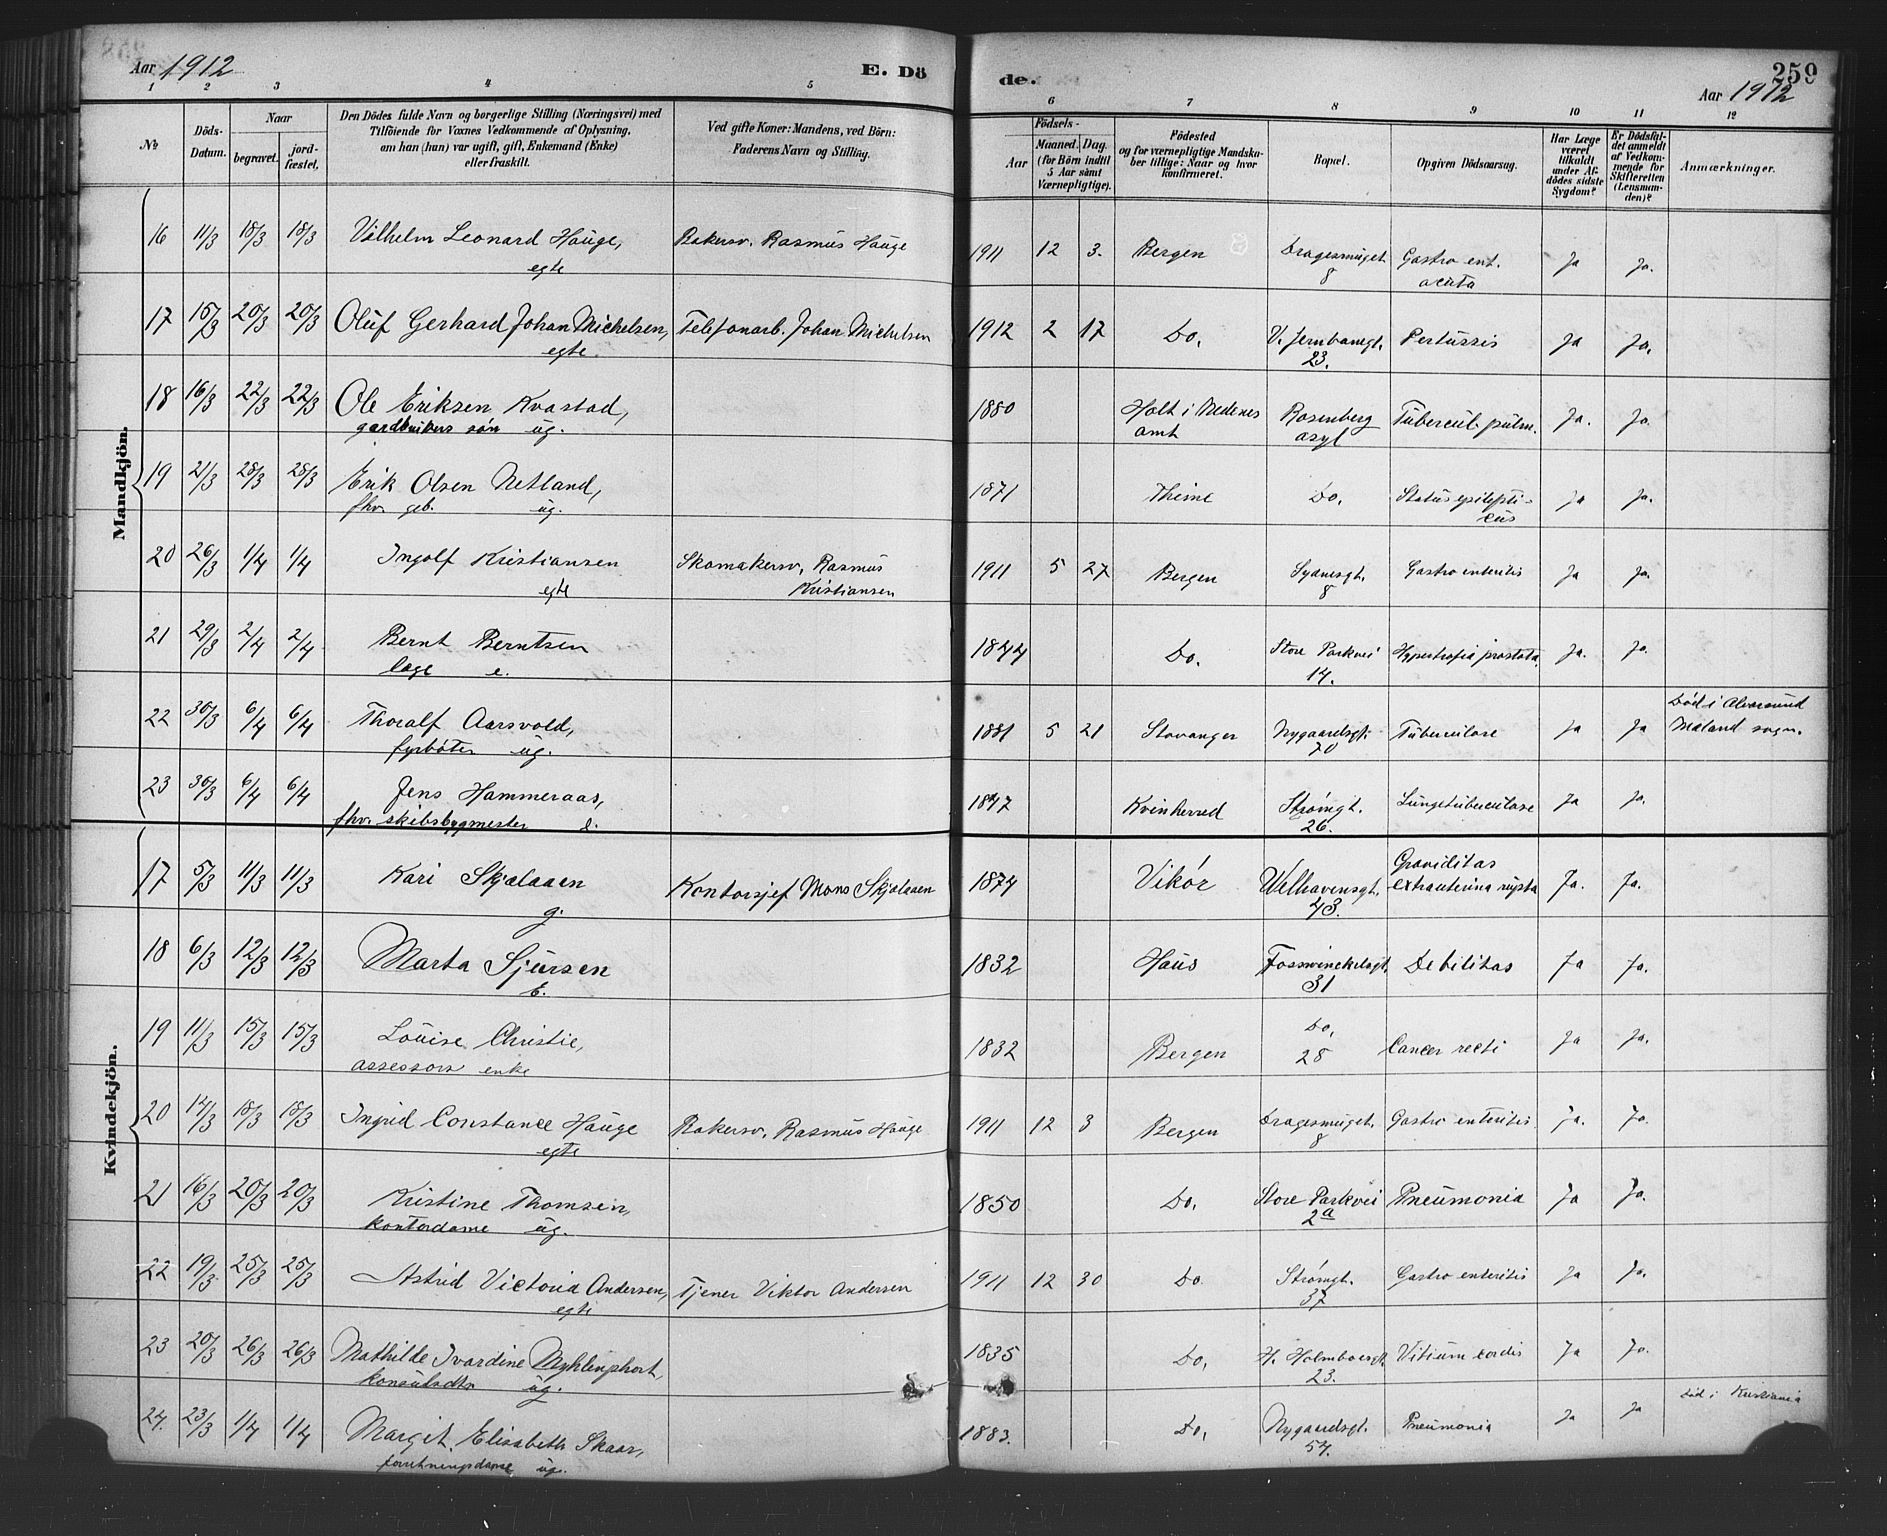 Aar 1912 E. Dö de. 259
Aar 1912
1 2 3 4 5 6 7 8 9 10 11 12
No
Döds-Datum.
Naar
begravet.
jord-fæstet.
Den Dödes fulde Navn og borgerlige Stilling (Næringsvei) med
Tilföiende for Voxnes Vedkommende af Oplysning,
om han (hun) var ugift, gift, Enkemand (Enke)
eller fraskilt.
Ved gifte Koner: Mandens, ved Börn:
Faderens Navn og Stilling.
Födsels-
Aar
Maaned. Dag.
(for Börn indtil
5 Aar sàmt
Værnepligtige).
Födested
og for værnepligtige Mandska-
ber tillige: Naar og hvor
konfirmeret.
Bopæl.
Opgiven Dödsaarsag.
Har Læge
været
tilkaldt
under Af-
dödes sidste
Sygdom?
Er Dödsfal-
det anmeldt
af Vedkom-
mende for
Skifteretten
(Lensman-
den)?
Anmærkninger.
Mandkjön.
16 11/3 18/3 18/3 Vilhelm Leonard Hauge, Bakersv. Rasmus Hauge 1911 12 3. Bergen Dragesmuget. Gastro ent. Ja Ja.
egte 8 acuta
17 15/3 20/3 20/3 Oluf Gerhard Johan Michelsen, Telefonarb. Johan Michelsen 1912 2 17 Do. V. Jernbanegt. Pertussis Ja Ja.
egte. 23.
18 16/3 22/3 22/3 Ole Eriksen Kvastad, 1880 Holt i Nedenes Rosenberg Tubercul. pulm. Ja. Ja.
gardbrukers søn ug. amt asyl
19 21/3 28/3 28/3 Erik Olsen Netland, 1871 Thime Do. Status epilepti- Ja Ja.
fhv. geb. ug. cus
20 26/3 1/4 1/4 Ingolf Kristiansen Skomakersv. Rasmus 1911 5 27 Bergen Sydnesgt. Gastro enteritis Ja Ja.
egte Kristiansen 8
21 29/3 2/4 2/4 Bernt Berntsen 1844 Do. Store Parkvei Hypertrofia prostata Ja. Ja.
læge e. 14.
22 30/3 6/4 6/4 Thoralf Aarsvold, 1881 5 21 Stavanger Nygaardsgt. Tuberculose Ja Ja Død i Alversund
fyrbøter ug. 70 Mæland sogn.
23 30/3 6/4 6/4 Jens Hammeraas, 1847 Kvinherred Strømgt. Lungetuberculose Ja Ja.
fhv. skibsbygmester e. 26.
Kvindekjön.
17 5/3 11/3 11/3 Kari Skjælaaen Kontorsjef Mons Skjælaaen 1874 Vikör Welhavensgt. Graviditas Ja. Ja.
g. 43. extrauterina rupta
18 6/3 12/3 12/3 Marta Sjursen 1832 Haus Fosswinckelsgt. Debilitas Ja Ja.
E. 31
19 11/3 15/3 15/3 Louise Christie, 1832 Bergen Do. Cancer recti Ja Ja.
assessors enke 28
20 14/3 18/3 18/3 Ingrid Constance Hauge Bakersv. Rasmus Hauge 1911 12 3 Bergen Dragesmuget. Gastro enteritis Ja. Ja.
egte 8
21 16/3 20/3 20/3 Kristine Thomsen, 1850 Do. Store Parkvei Pneumonia Ja Ja.
kontordame ug. 2a
22 19/3 25/3 25/3 Astrid Victoria Andersen, Tjener Viktor Andersen 1911 12 30 Do. Strømgt. Gastro enteritis Ja Ja.
egte 37
23 20/3 26/3 26/3 Mathilde Ivardine Myhlenphort, 1835 Do. H. Holmboesgt. Vitium cordis Ja Ja.
ug. 23.
24. 23/3 1/4 1/4 Margit Elisabeth Skaar, 1883. Do. Nygaardsgt. Pneumonia Ja Ja Død i Kristiania
forretningsdame ug. 57.